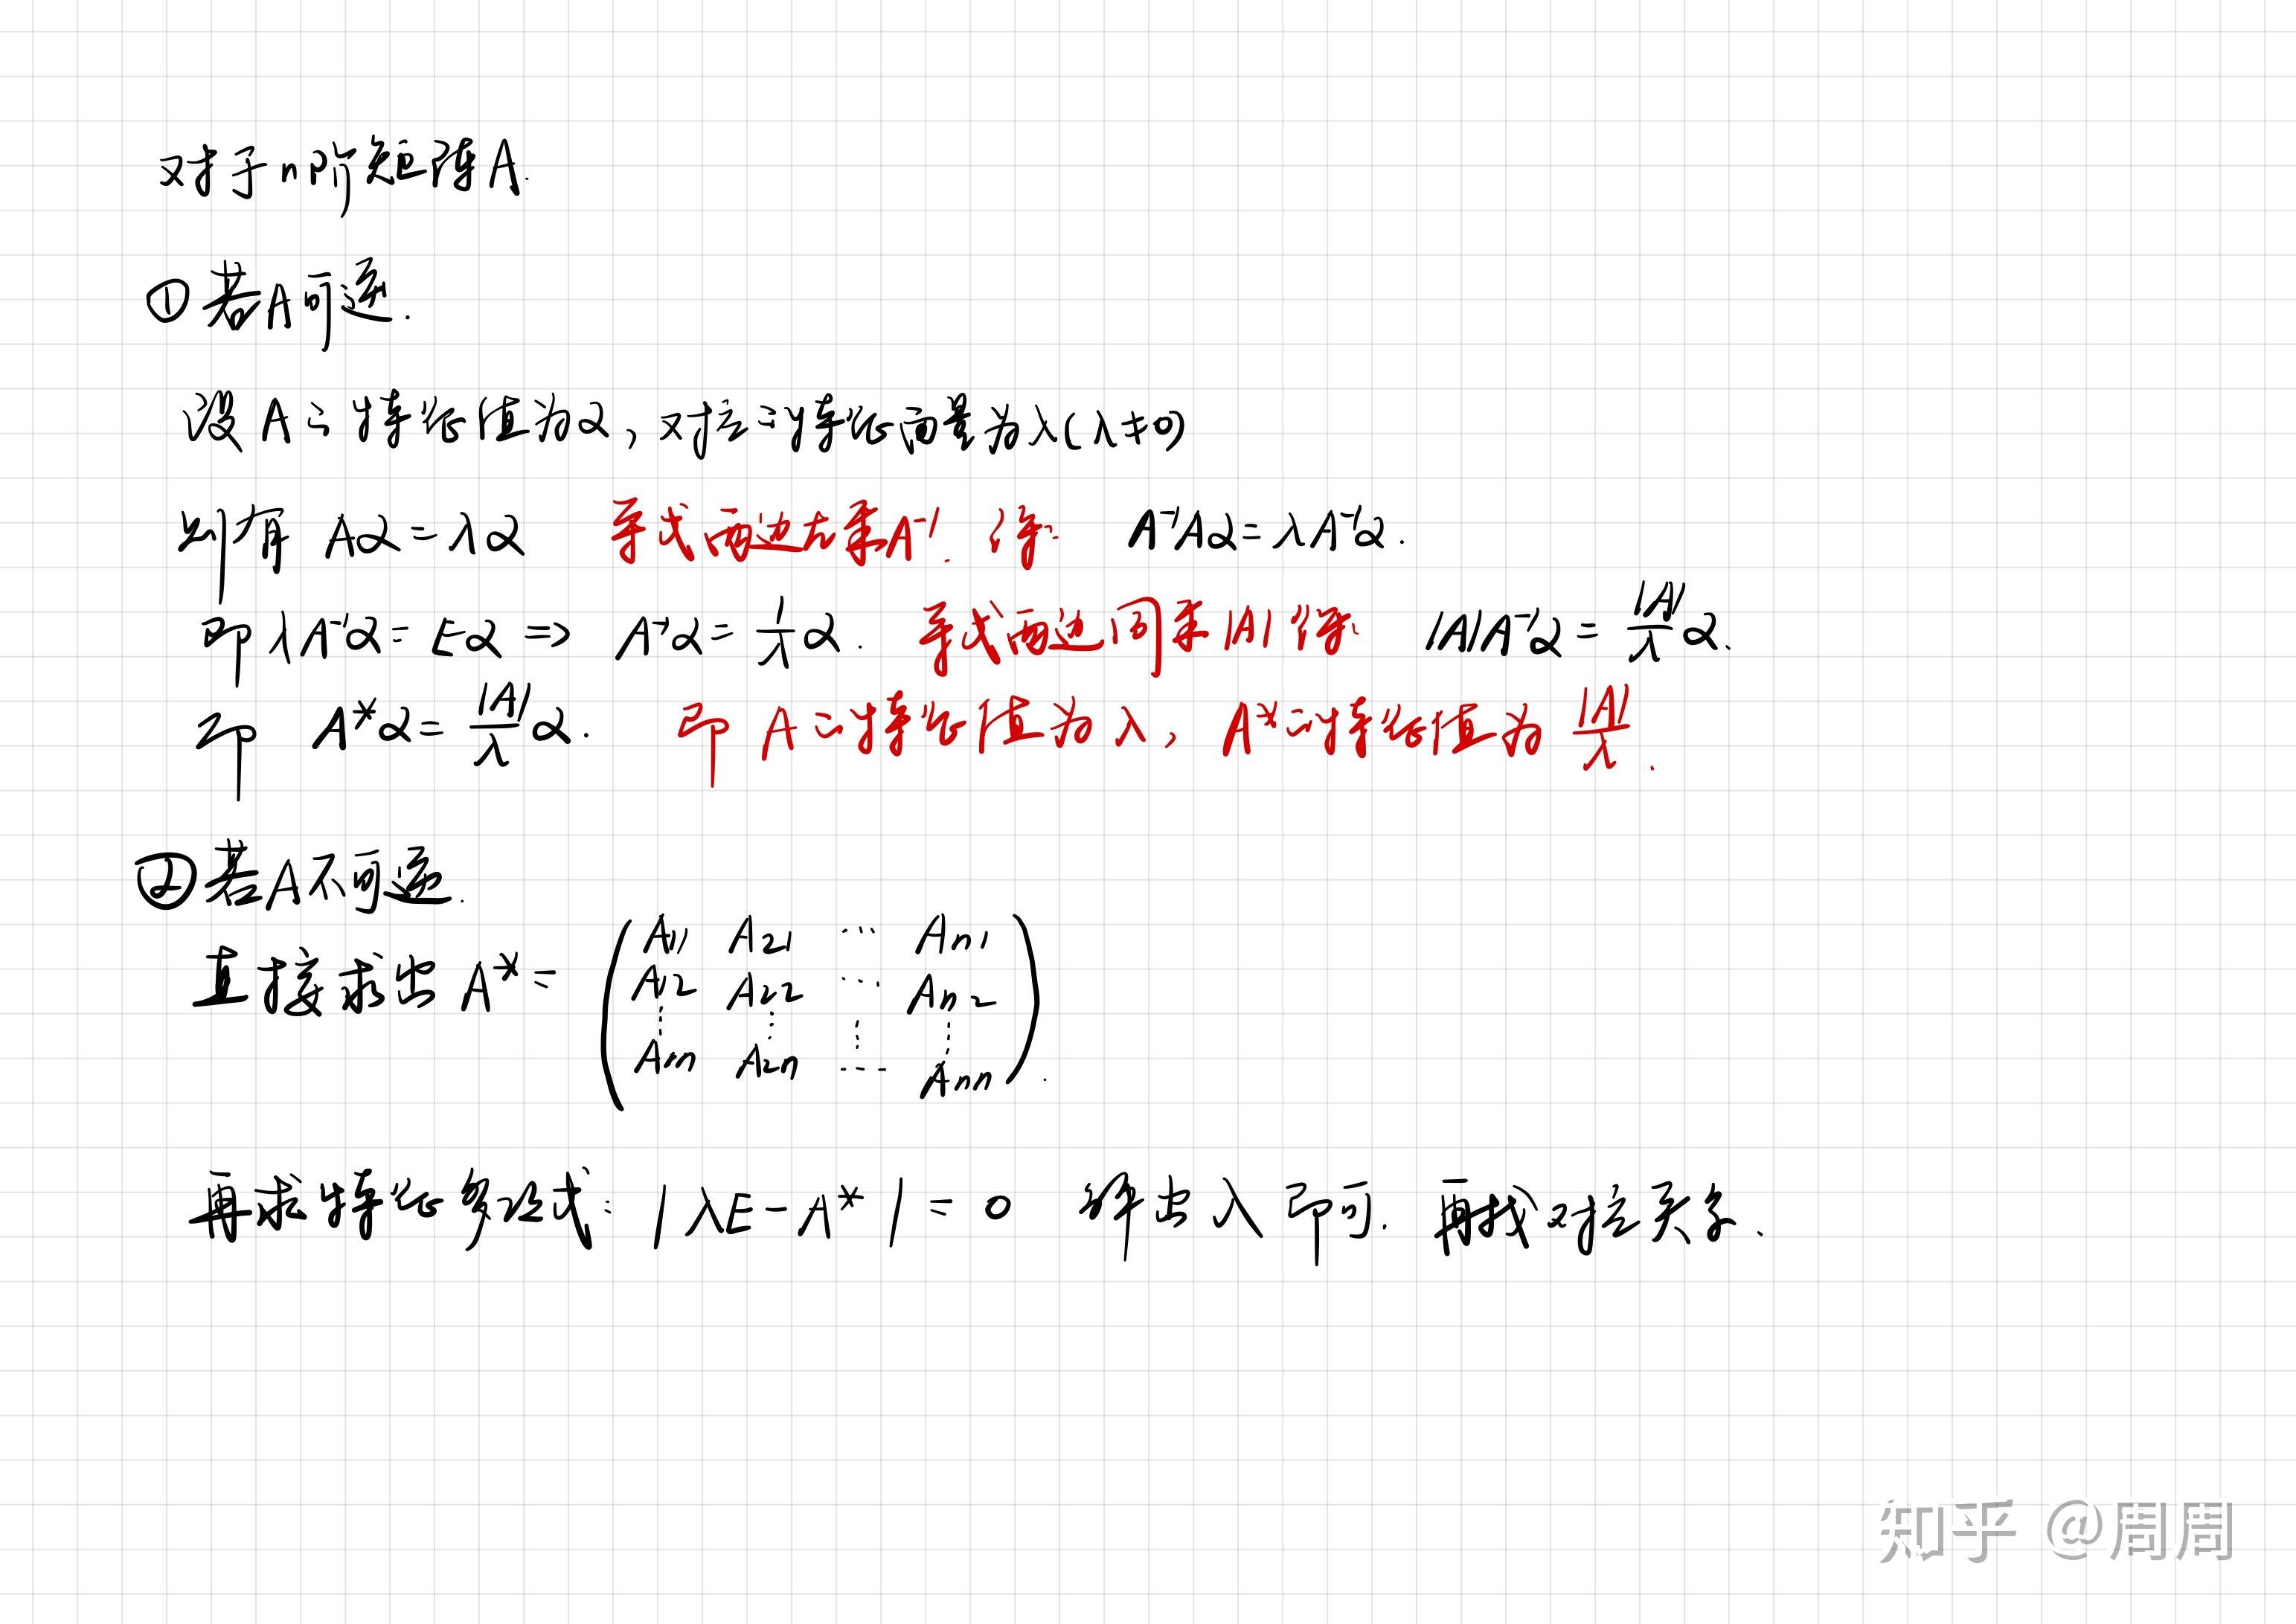 对于n阶矩阵A.
①若A可逆.
设A的特征值为α,对应的特征向量为λ(λ≠0)
则有 Aα=λα 等式两边左乘A⁻¹.得: A⁻¹Aα=λA⁻¹α.
即λA⁻¹α=Eα⇒ A⁻¹α=1/λ α. 等式两边同乘|A|得 |A|A⁻¹α=|A|/λ α.
即 A*α=|A|/λ α. 即A的特征值为λ, A*的特征值为|A|/λ.
②若A不可逆.
直接求出A*=
A11 A21 ⋯ An1
A12 A22 ⋯ An2
⋮ ⋮ ⋮ ⋮
A1n A2n ⋯ Ann.
再求特征多项式: |λE-A*|=0 解出λ即可. 再找对应关系.
知乎 @周周